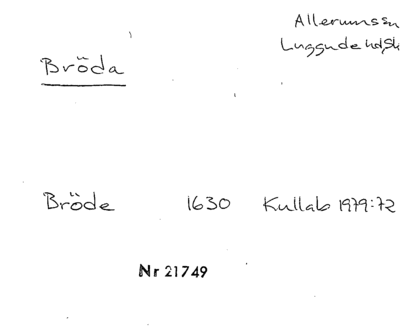 Allerumssn
Luggude hd, Sk
Bröda
Bröde 1630 Kullab 1979:72
Nr 21749